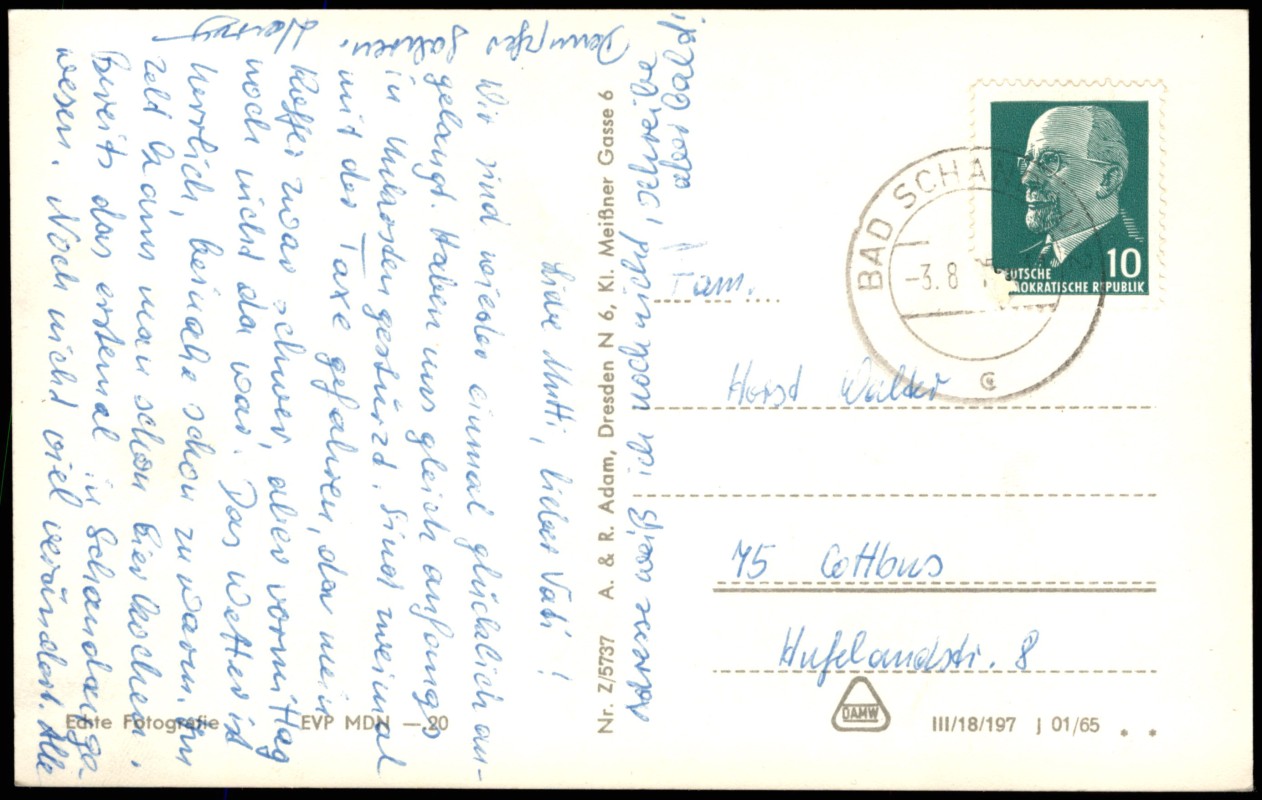 Liebe Mutti, lieber Vati!
Wir sind wieder einmal glücklich an-
gelangt. Haben uns gleich anfangs
in Unkosten gestürzt. Sind zweimal
mit der Taxe gefahren, da mein
Koffer zwar schwer, aber vormittag
noch nicht da war. Das Wetter ist
herrlich, beinahe schon zu warm. Im
Zelt kann man schon hier kochen.
Bereits das erstemal in Schandau ge-
wesen. Noch nicht viel verändert. Alle
Adresse weiß ich noch nicht, schreibe
aber bald!
Nr. Z/5737 A. & R. Adam, Dresden N 6, Kl. Meißner Gasse 6
Echte Fotografie EVP MDN —.20
BAD SCHAN
-3.8
10
DEUTSCHE
DEMOKRATISCHE REPUBLIK
Fam.
Horst Walter
75 Cottbus
Hufelandstr. 8
DAMW
III/18/197 J 01/65 * *